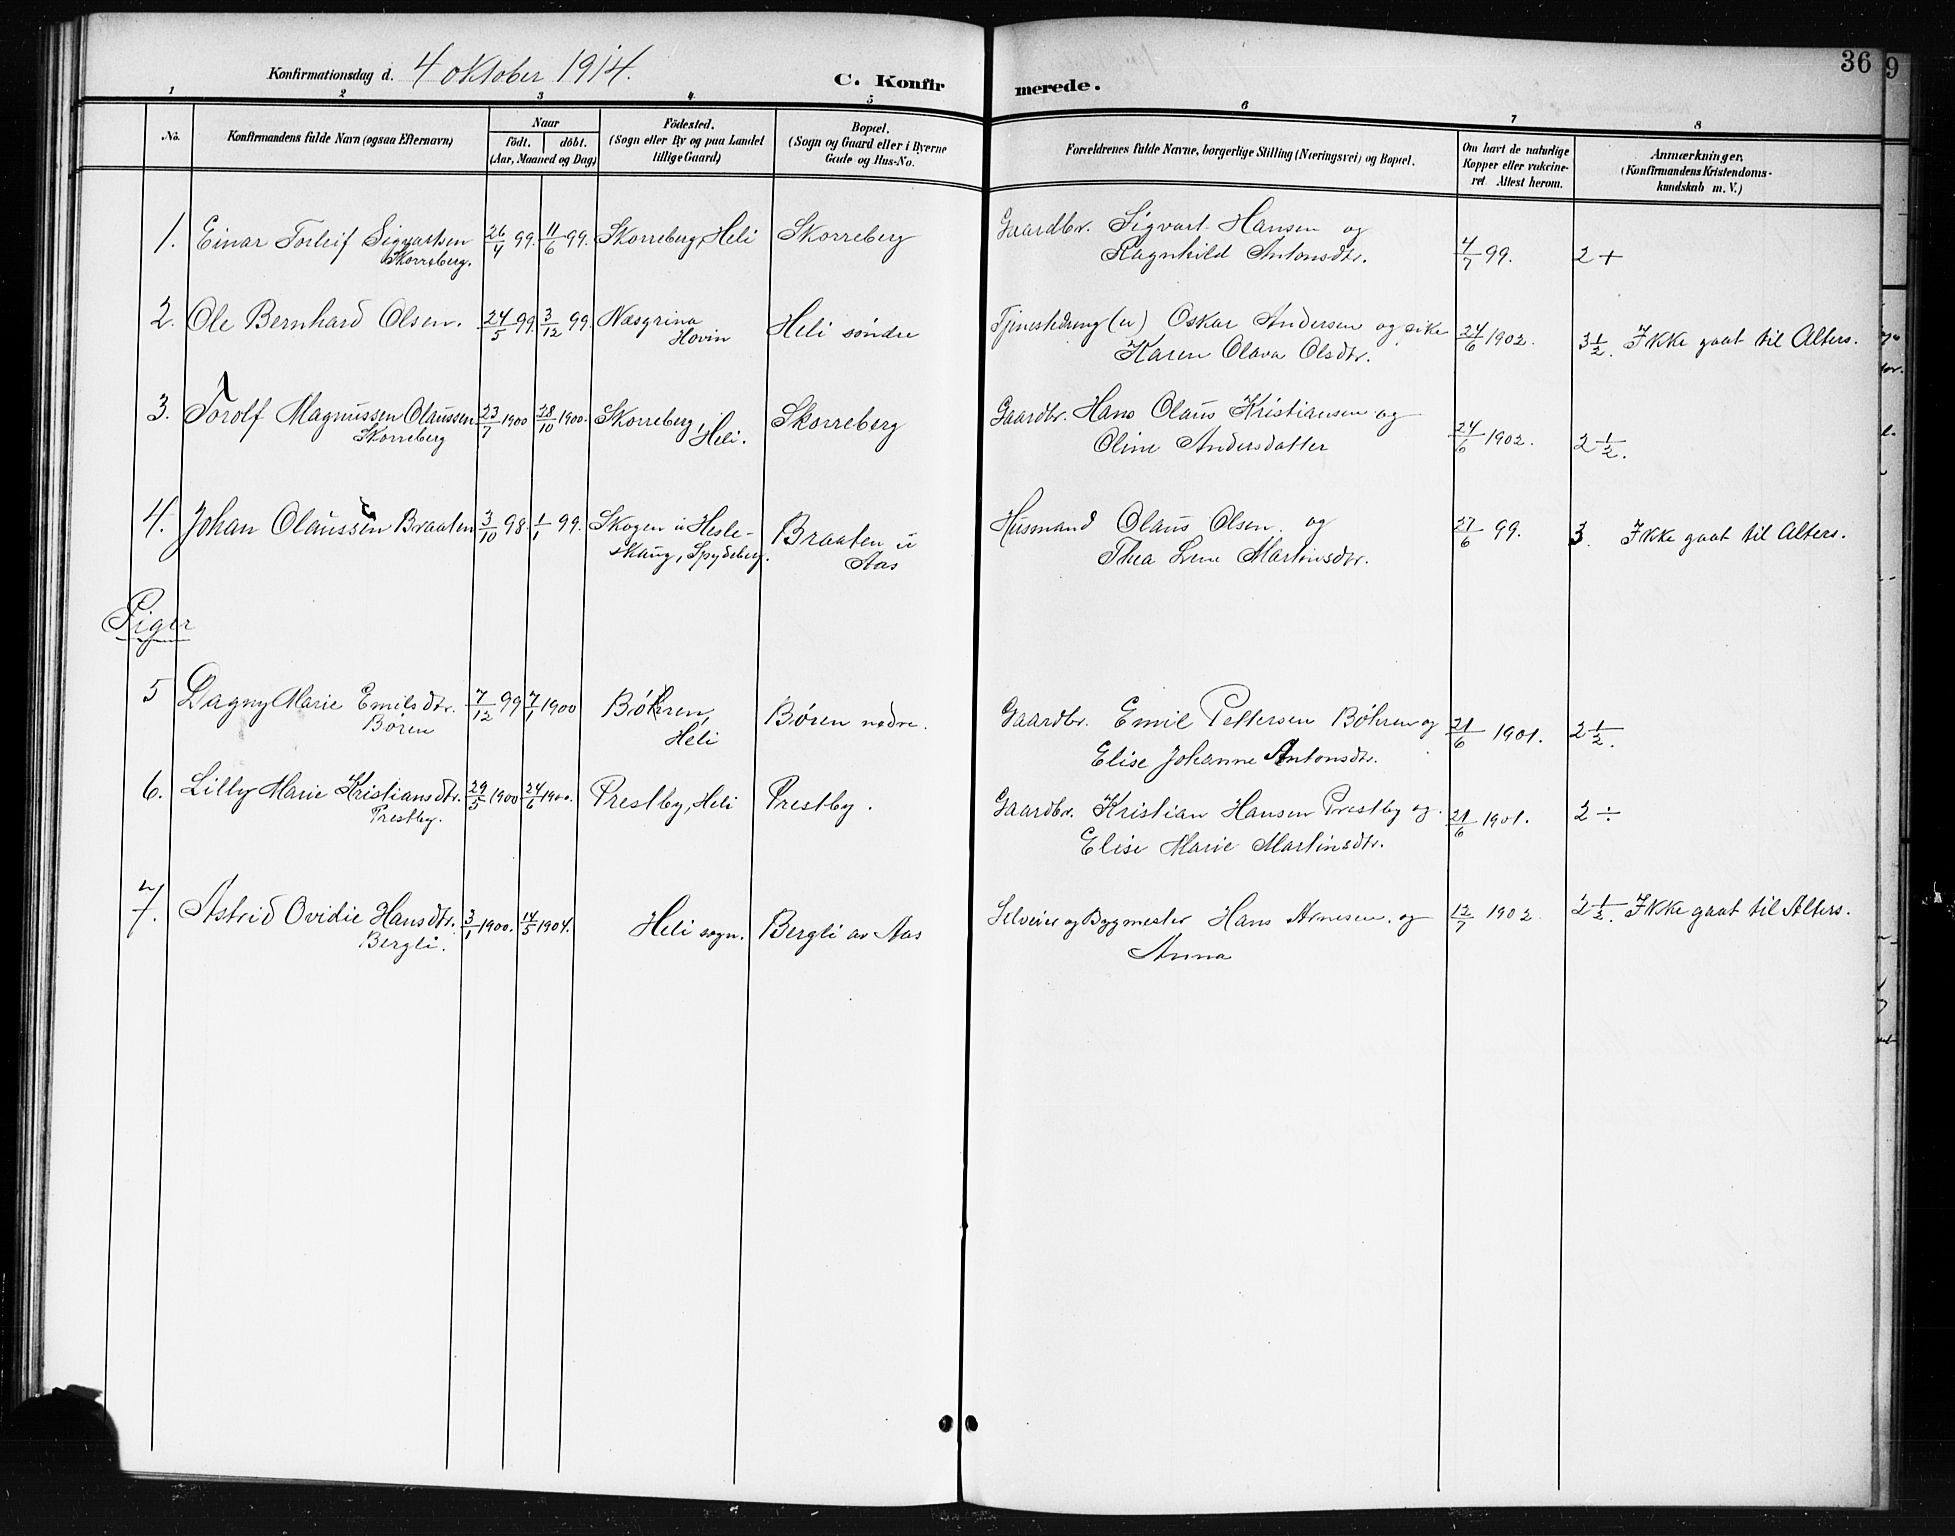 36
9
Konfirmationsdag d. 4 oktober 1914.
C. Konfirmerede.
1 2 3 4 5 6 7 8
No.
Konfirmandens fulde Navn (ogsaa Efternavn)
Naar
födt. döbt.
(Aar, Maaned og Dag)
Födested.
(Sogn eller By og paa Landet
tillige Gaard)
Bopæl.
(Sogn og Gaard eller i Byerne
Gade og Hus-No.
Forældrenes fulde Navne, borgerlige Stilling (Næringsvei) og Bopæl.
Om havt de naturlige
Kopper eller vakcine-
ret Attest herom.
Anmærkninger.
(Konfirmandens Kristendoms-
kundskab m. V.)
1. Einar Torleif Sigvartsen 26/4 99. 11/6 99. Skorreberg, Heli Skorreberg Gaardbr. Sigvart Hansen og
Skorreberg. Ragnhild Antonsdtr. 4/7 99. 2 +
2. Ole Bernhard Olsen. 24/5 99. 3/12 99. Næsgrina Heli söndre Tjenestedreng (er) Oskar Andersen og pike 24/6 1902. 3 1/2. Ikke gaat til Alters.
Hovin Karen Olava Olsdtr.
3. Torolf Magnussen Olaussen 23/7 1900 28/10 1900. Skorreberg, Skorreberg Gaardbr. Hans Olaus Kristiansen og
Skorreberg Heli. Oline Andersdatter 24/6 1902. 2 1/2.
4. Johan Olaussen Braaten 3/10 98. 1/1 99. Skogen u Hesle- Braaten u Husmand Olaus Olsen og 27/6 99. 3. Ikke gaat til Alters.
skaug, Spydeberg. Aas Thea Lene Martinsdtr.
Piger
5 Dagny Marie Emilsdtr. 7/12 99 7/1 1900 Böhren, Bören nedre. Gaardbr. Emil Pettersen Böhren og 21/6 1901. 2 1/2.
Bören Heli Elise Johanne Antonsdtr.
6. Lilly Marie Kristiansdtr. 29/5 1900 24/6 1900. Prestby, Heli Prestby. Gaardbr. Kristian Hansen Prestby og 21/6 1901. 2 ÷
Prestby. Elise Marie Martinsdtr.
7. Astrid Ovidie Hansdtr. 3/1 1900. 14/5 1904. Heli sogn. Bergli av Aas Selveier og Bygmester Hans Arnesen og 12/7 1902. 2 1/2. Ikke gaat til Alters.
Bergli. Anna